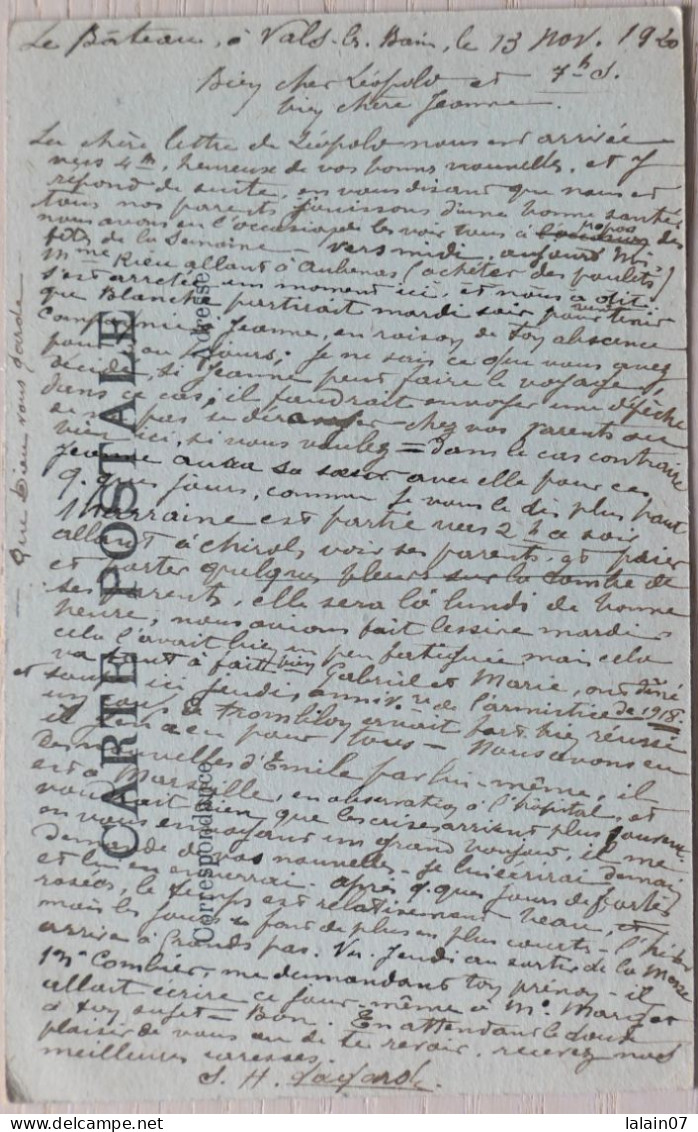 Le Bateau, à Vals-les-Bains, le 13 nov. 1920
Bien cher Léopold et 7h s.
bien chère Jeanne.
La chère lettre de Léopold nous est arrivée
vers 4h, heureuse de vos bonnes nouvelles, et j'y
répond de suite, en vous disant que nous et
tous nos parents jouissons d'une bonne santé
nous avons eu l'occasion de les voir tous à propos des
fêtes de la Semaine — vers midi, aujourd'hui
Mme Rieu allant à Aubenas (acheter des poulets)
s'est arrêtée un moment ici, et nous a dit
que Blanche partirait mardi soir pour venir tenir
compagnie à Jeanne, en raison de ton absence
pour jours; Je ne sais ce que vous avez
décidé, si Jeanne peut faire le voyage,
dans ce cas, il faudrait envoyer une dépêche
de ne pas se déranger chez vos parents ou
bien ici, si vous voulez = dans le cas contraire
Jeanne aura sa sœur avec elle pour ces
q. ques jours, comme je vous le dis plus haut
Marraine est partie vers 2h ce soir
allant à Chirols voir ses parents et prier
et porter quelques fleurs sur la tombe de
ses parents, elle sera là lundi de bonne
heure, nous avions fait lessive mardi
cela l'avait bien un peu fatiguée mais cela
va tout à fait bien Gabriel et Marie, ont dîné
et soupé ici jeudi anniv. re de l'armistice de 1918.
un était fort bien réussi
il y en a eu pour tous — Nous avons eu
des nouvelles d'Emile par lui-même, il
est à Marseille, en observation à l'hôpital, et
voudrait bien que les crises arrient plus souvent
en vous envoyant un grand bonjour, il me
demande de vos nouvelles — je lui écrirai demain
et lui en enverrai. Après q. ques jours de fortes
rosées, le temps est relativement beau, et
mais les jours se font de plus en plus courts — l'hiver
arrive à grands pas. Vu Jeudi au sortir de la Messe
Mr Combier, me demandant ton prénom — il
allait écrire ce jour-même à Mr
à ton sujet — Bon. En attendant le doux
plaisir de vous ou de te revoir, recevez nos
meilleures caresses.
J. H.
— Que Dieu vous garde —
CARTE POSTALE
Correspondance
Adresse
lalain07